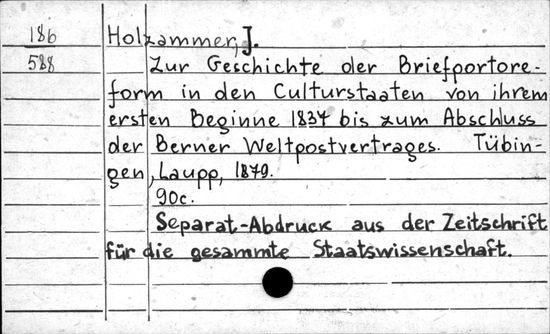 186 Holzammer, J.
588 Zur Geschichte der Briefportore-
form in den Culturstaaten von ihrem
ersten Beginne 1837 bis zum Abschluss
der Berner Weltpostvertrages. Tübin-
gen, Laupp, 1879.
90c.
Separat-Abdruck aus der Zeitschrift
für die gesammte Staatswissenschaft.